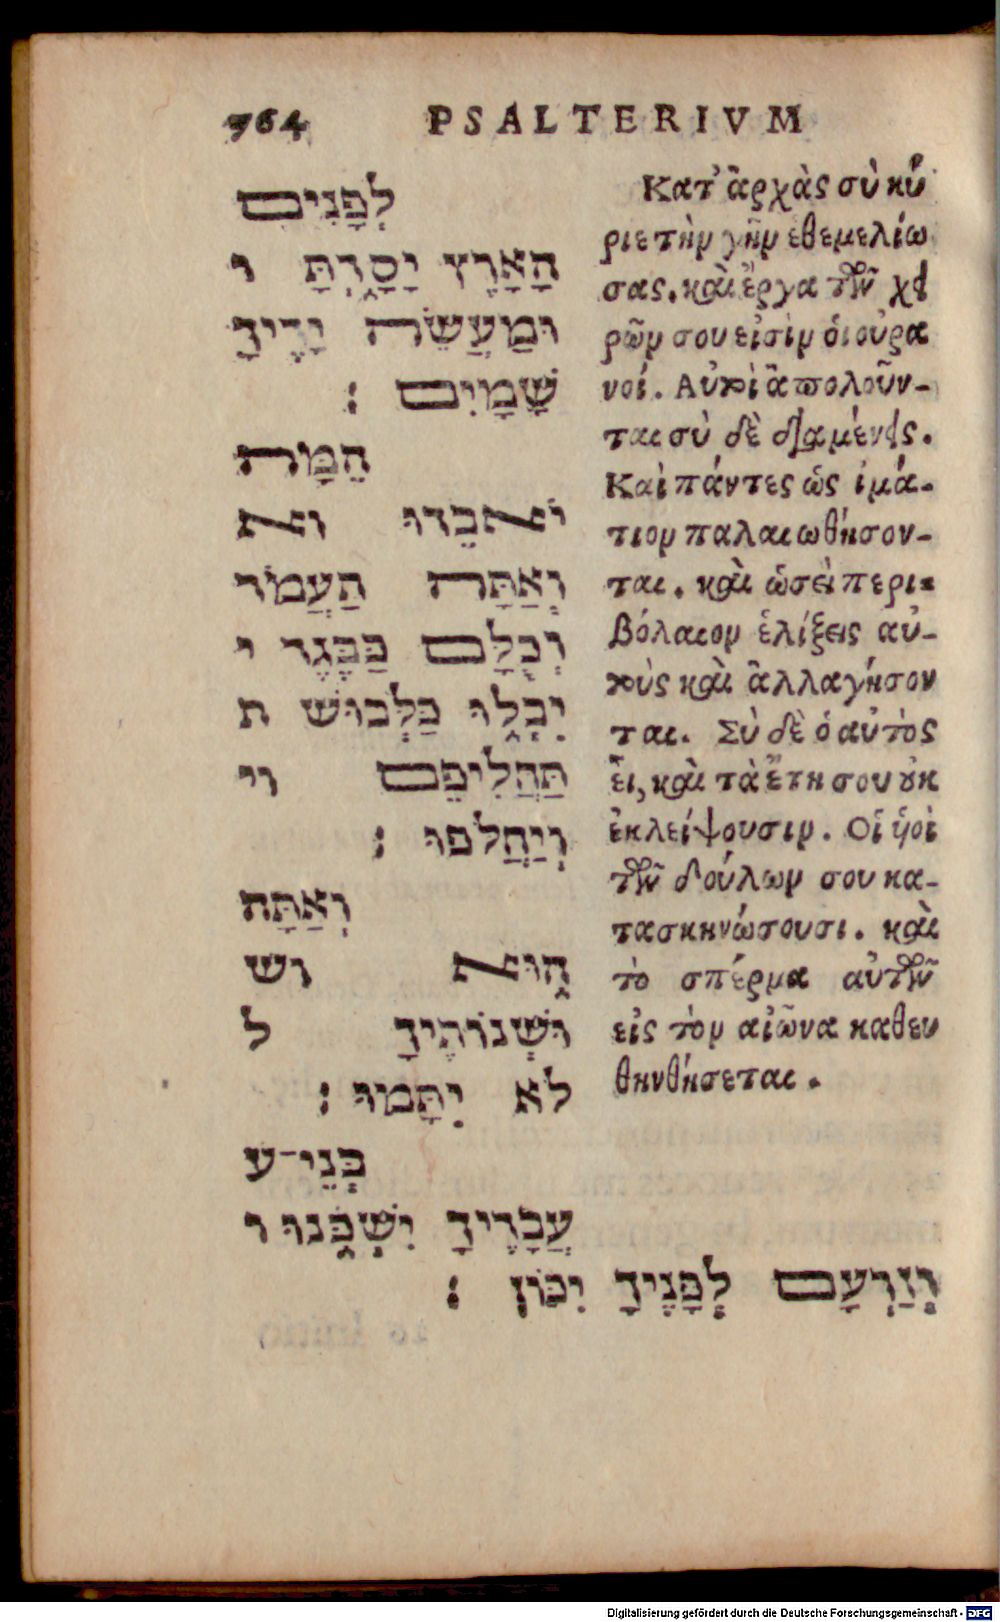 764 PSALTERIVM
לְפָנִים
הָאָרֶץ יָסָדְתָּ ו
וּמַעֲשֵׂה יָדֶיךָ
שָׁמָיִם :
הֵמָּה
יֹאבֵדוּ וא
וְאַתָּה תַעֲמֹד
וְכֻלָּם כַּבֶּגֶד י
יִבְלוּ כַּלְּבוּשׁ ת
תַּחֲלִיפֵם וי
וְיַחֲלֹפוּ :
וְאַתָּה
הוּא וש
וּשְׁנוֹתֶיךָ ל
לֹא יִתָּמּוּ :
בְּנֵי־ע
עֲבָדֶיךָ יִשְׁכֹּנוּ ו
וְזַרְעָם לְפָנֶיךָ יִכּוֹן :
Κατ' ἀρχὰς σὺ κύ
ριε τὴν γῆν ἐθεμελίω
σας. καὶ ἔργα τῶν χει
ρῶν σου εἰσὶν ὁι οὐρα
νοί. Αὐτοὶ ἀπολοῦν-
ται σὺ δὲ διαμένεις.
Καὶ πάντες ὡς ἱμά-
τιον παλαιωθήσον-
ται. καὶ ὡσεὶ περι-
βόλαιον ἑλίξεις αὐ-
τοὺς καὶ ἀλλαγήσον
ται. Σὺ δὲ ὁ αὐτὸς
εἶ, καὶ τὰ ἔτη σου οὐκ
ἐκλείψουσιν. Οἱ ὑιοὶ
τῶν δούλων σου κα-
τασκηνώσουσι. καὶ
τὸ σπέρμα αὐτῶν
εἰς τὸν αἰῶνα κατευ
θηνθήσεται.
Digitalisierung gefördert durch die Deutsche Forschungsgemeinschaft - DFG